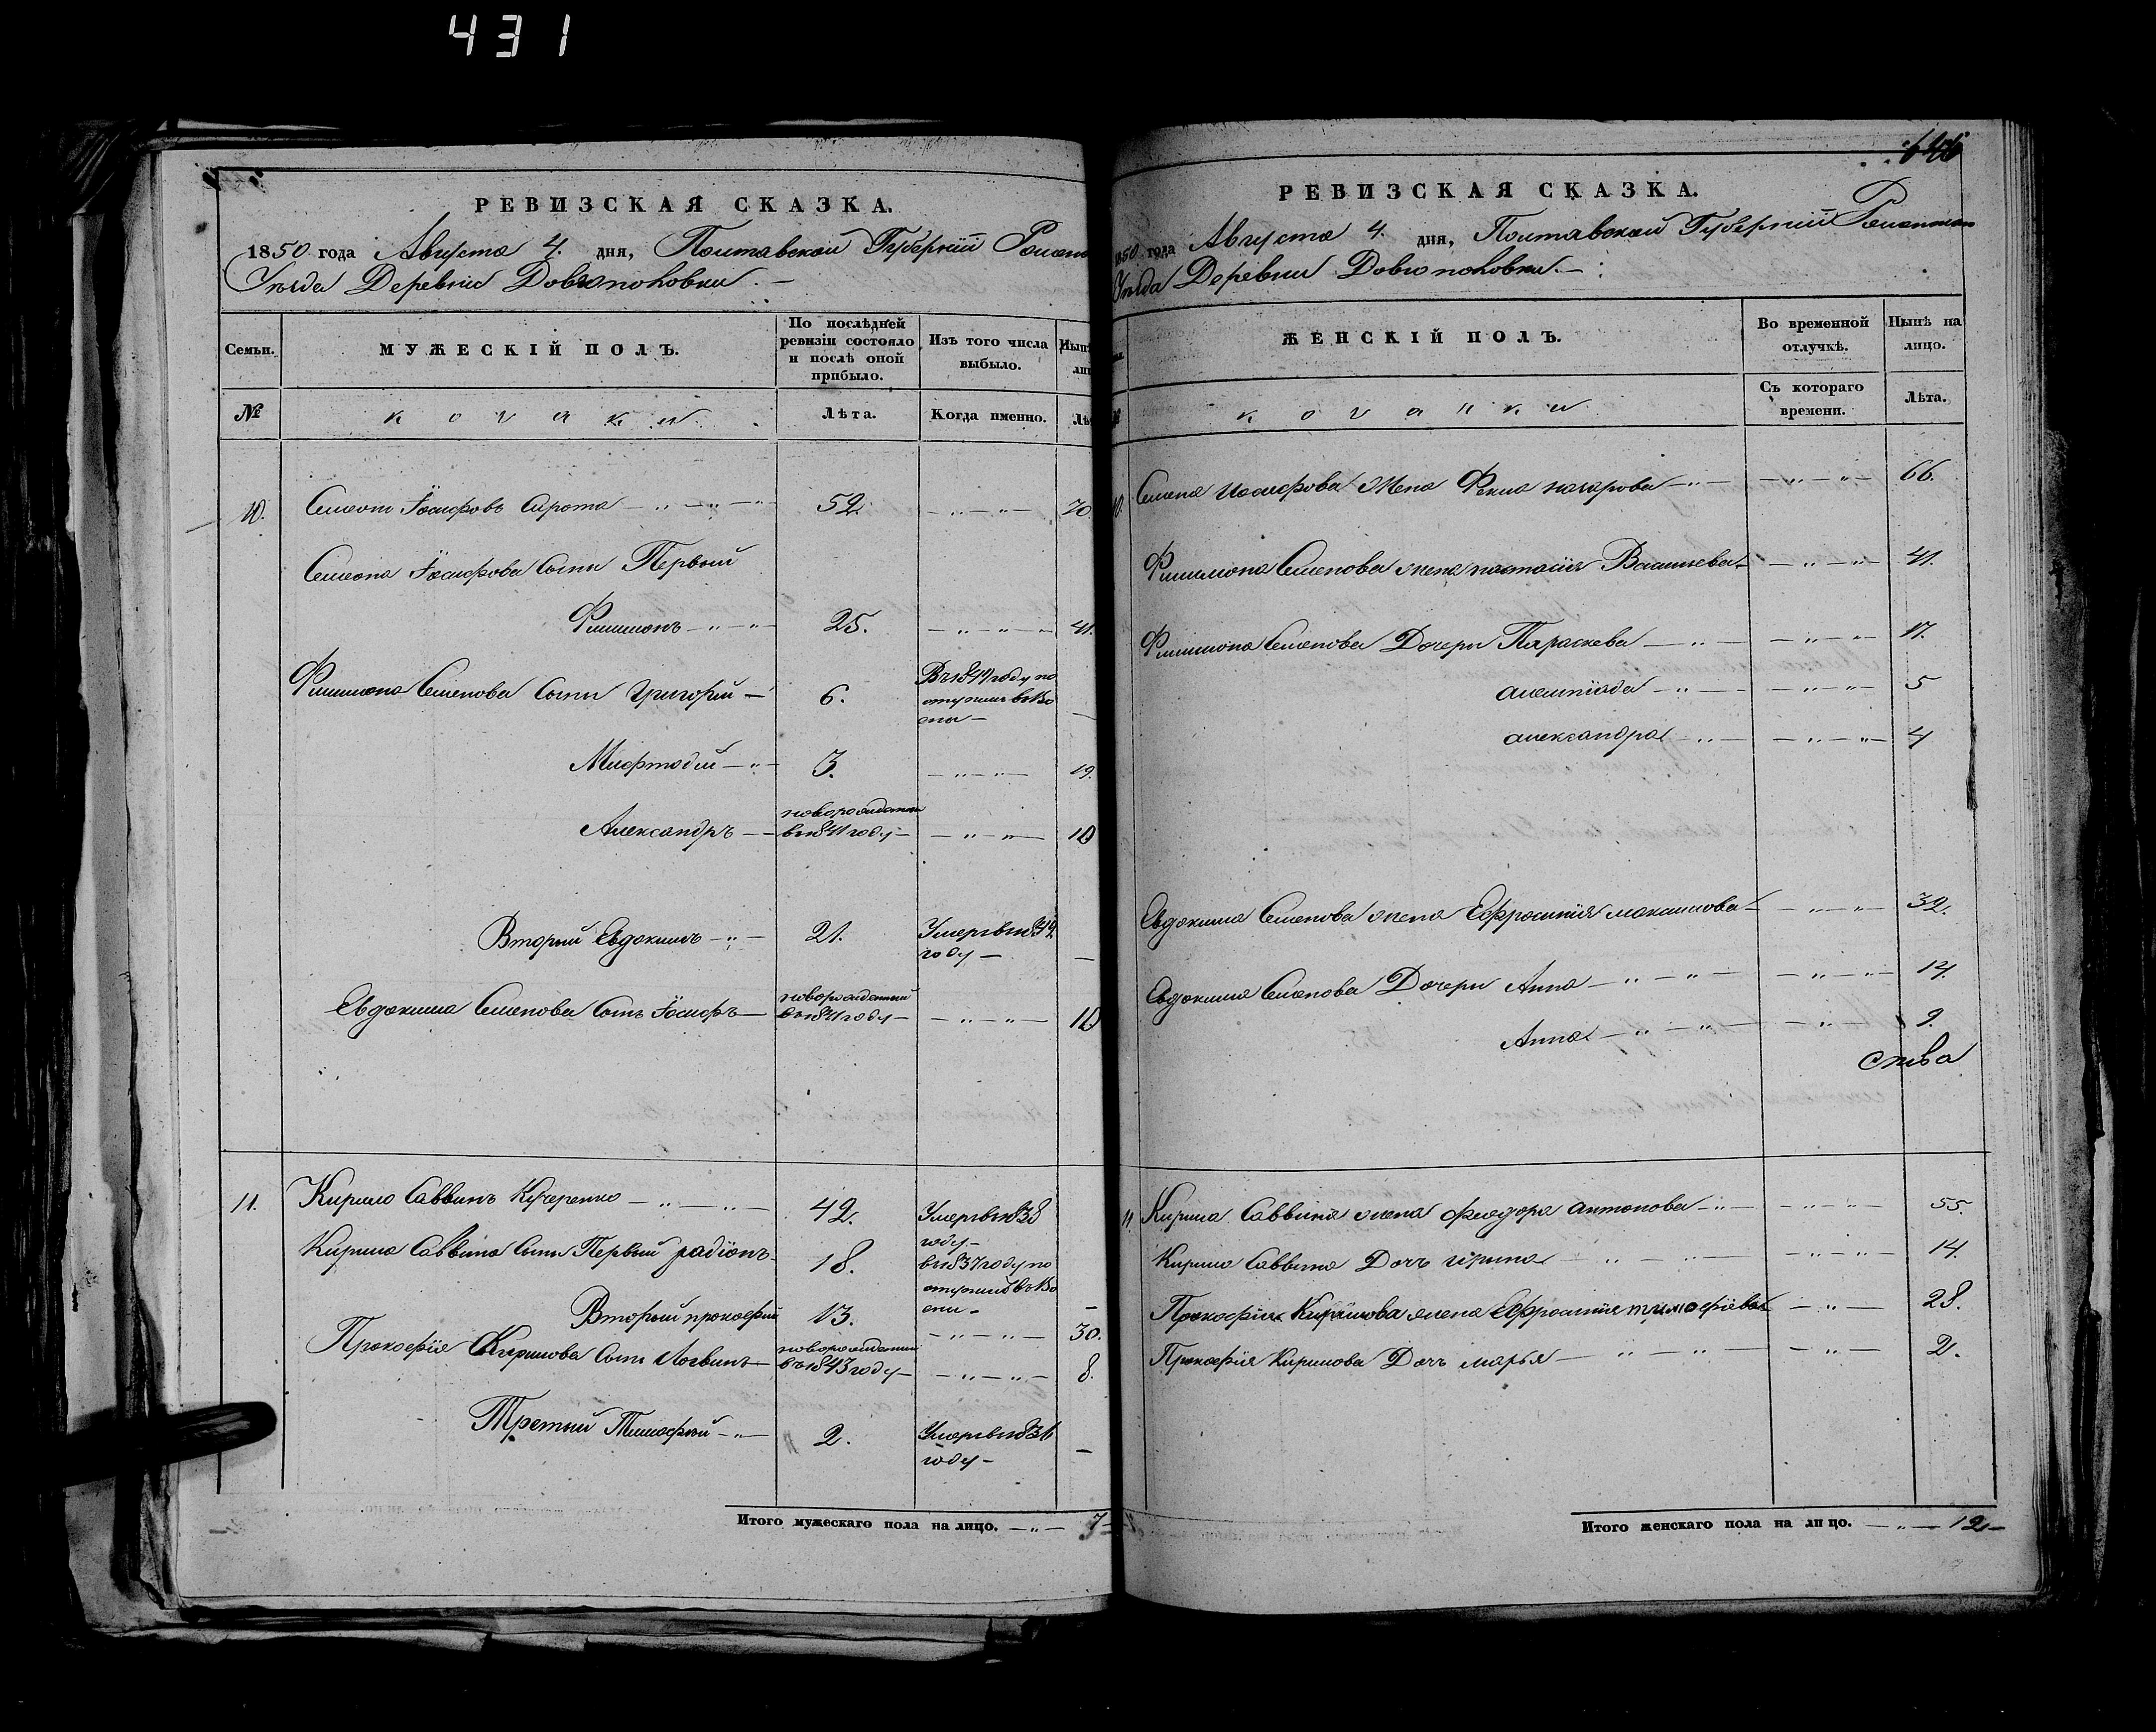 431
РЕВИЗСКАЯ СКАЗКА.
1850 года Августа 4. дня, Полтавской Губерніи
Уѣзда Деревни
Семьи.
МУЖЕСКІЙ ПОЛЪ.
По послѣдней ревизіи состояло и послѣ оной прибыло.
Изъ того числа выбыло.
№
козаки
Лѣта.
Когда именно.
10. Симеонъ Іосифовъ Сирота 52. 70.
Симеона Іосифова Сыны Первый
Филимонъ 25. 41.
Филимона Семенова Сыны Григорій 6.
Мефтодій 3. 19.
Александръ новорожденный въ 1841 году 10
Вторый Евдокимъ 21. Умеръ въ
году
Евдокима Семенова Сынъ Іосифъ новорожденный въ 1841 году 10
11. Кирило Саввинъ Кучеренко 42. Умеръ въ 1838 году
Кирила Саввина Сыны Первый радіонъ 18. въ 1837 году по
Вторый прокофій 13. 30.
Прокофія Кирилова Сынъ Логвинъ новорожденный въ 1843 году 8.
Третый Тимофѣй 2. Умеръ въ 1836 году
Итого мужескаго пола на лицо. 7
646
РЕВИЗСКАЯ СКАЗКА.
1850 года Августа 4. дня, Полтавской Губерніи
Уѣзда Деревни
ЖЕНСКІЙ ПОЛЪ.
Во временной отлучкѣ.
Нынѣ на лицо.
козачки
Съ котораго времени.
Лѣта.
Семена Иосифова жена Фекла назарова 66.
Филимона Семенова жена настасія Васильева 41.
Филимона Семенова Дочери Параскева 17.
5
александра 4
Евдокима Семенова жена Ефросинія максимова 32.
Евдокима Семенова Дочери Анна 14.
Анна 9.
11. Кирила Саввина жена феодора антонова 55.
Кирила Саввина Дочь ирина 14.
Прокофія Кирилова жена Ефросинія тимофіева 28.
Прокофія Кирилова Дочь марья 2.
Итого женскаго пола на лицо. 12